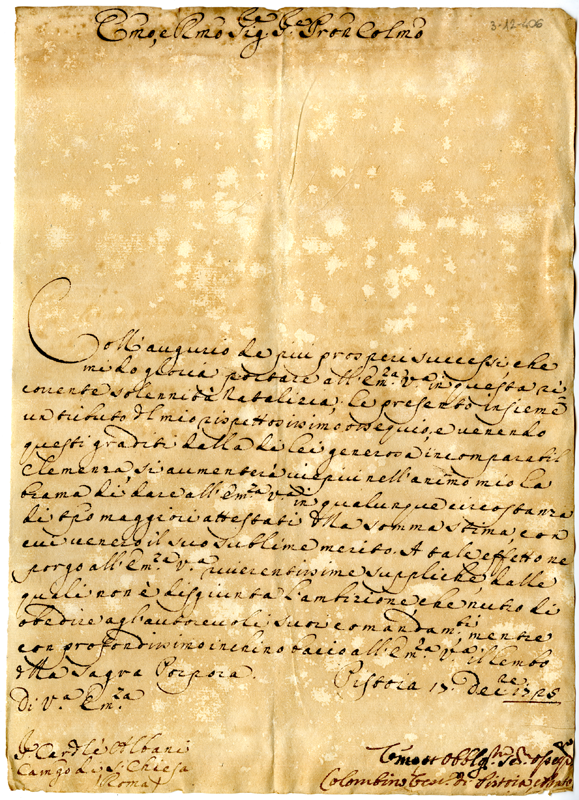 3-12-406
Emo, e Rmo Sig.re Sig.re Pron Colmo
Coll'augurio de piu prosperi successi, che
mi do gloria portare all'Em.za V.a in questa ri
corrente solennità Natalizia; le presento insieme
un tributo del mio rispettosissimo ossequio, e venendo
questi graditi dalla di lei generosa incomparabil
Clemenza, si aumenterà viepiu nell'animo mio la
brama di dare all'Em.za V.a in qualunque circostanza
di tpo maggiori attestati della somma stima, con
cui venero il suo sublime merito. A tale effetto ne
porgo all'Em.za V.a riverentissime suppliche, dalle
quali non è disgiunta l'ambizione che nutro di
obedire agl'autorevoli suoi comandam.ti, mentre
con profondissimo inchino bacio all'Em.za V.a il lembo
della Sagra Porpora.
Pistoia 17. Dec.re 1725
Di V.a Em.za
S.r Card.le Albani
Camgo di S. Chiesa
Roma
Obblig.mo
Colombino Vesc.o di Pistoia e Prato